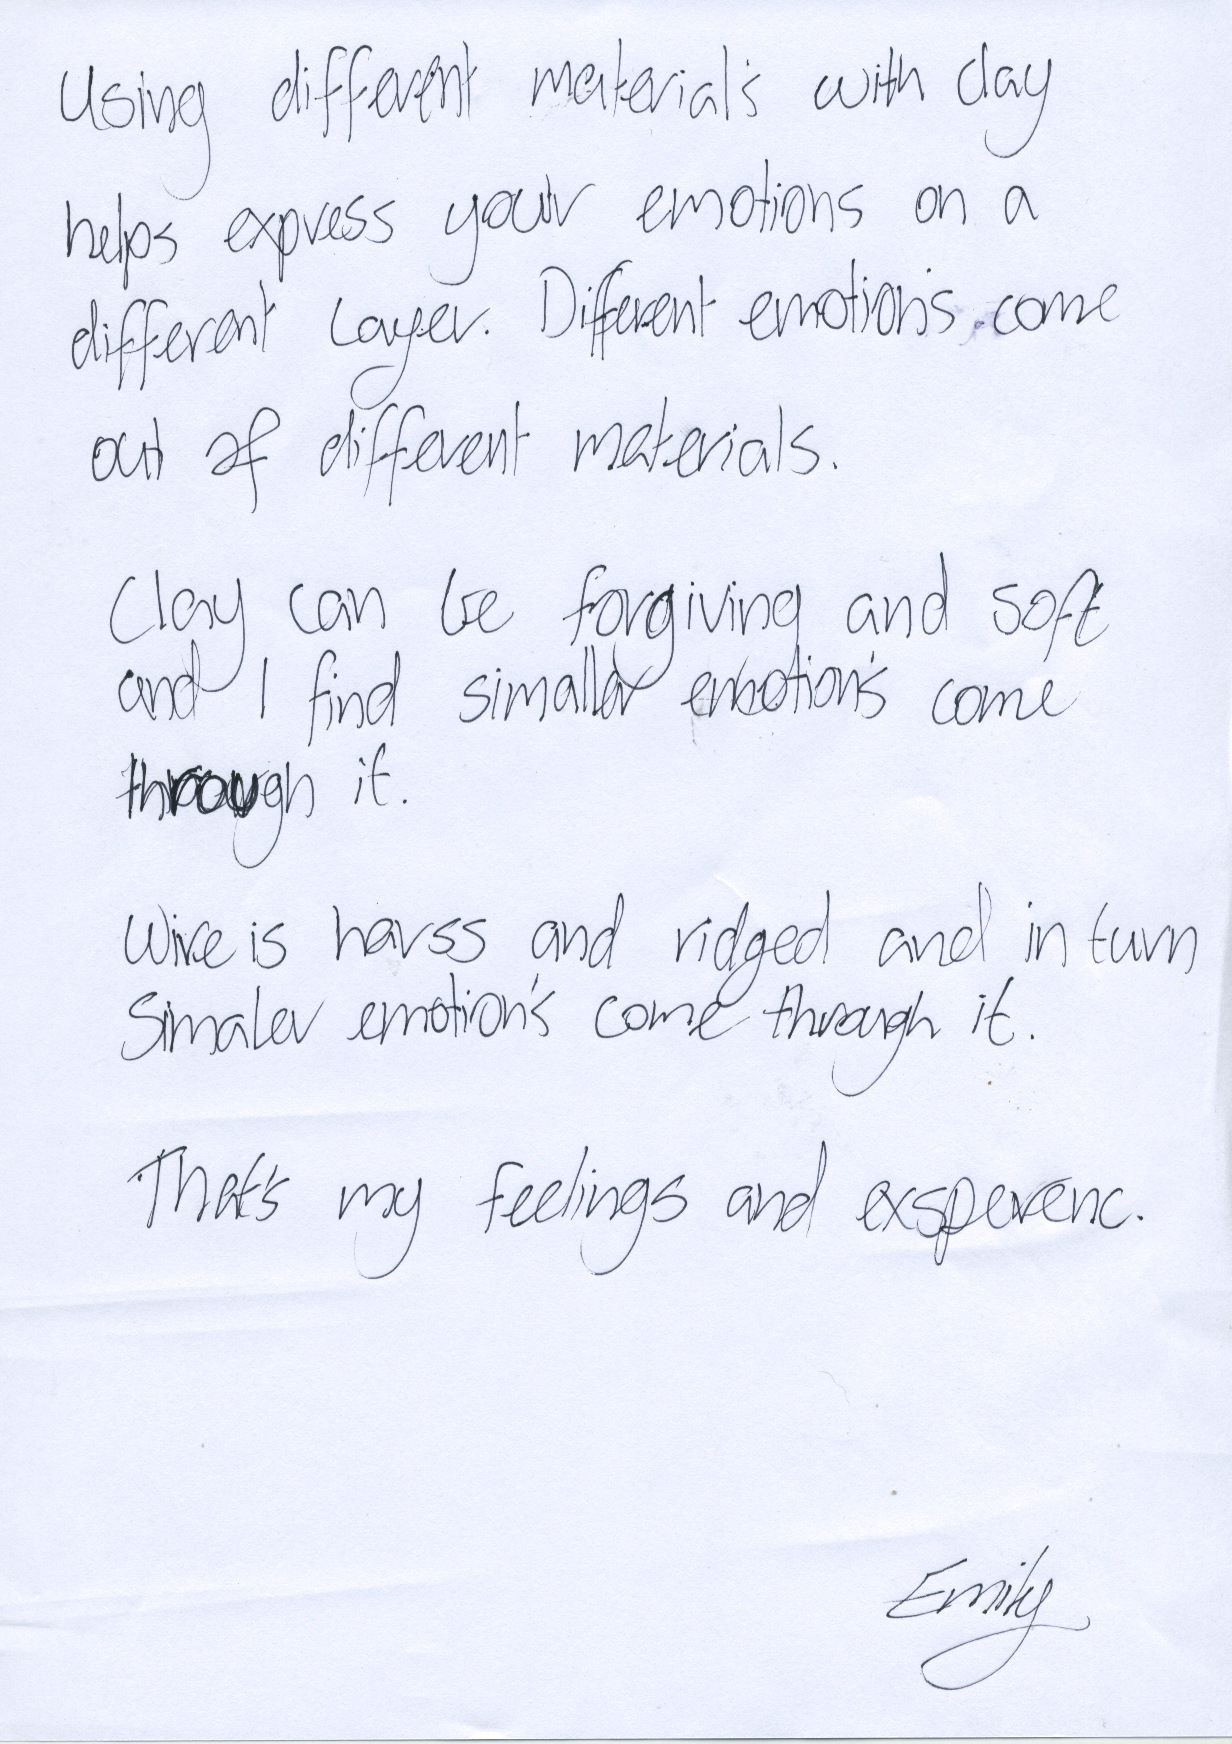 Using different material's with clay
helps express your emotions on a
different layer. Different emotion's come
out of different materials.
Clay can be forgiving and soft
and I find simallar emotion's come
through it.
Wire is harss and ridged and in turn
Simaler emotion's come through it.
That's my feelings and exsperenc.
Emily